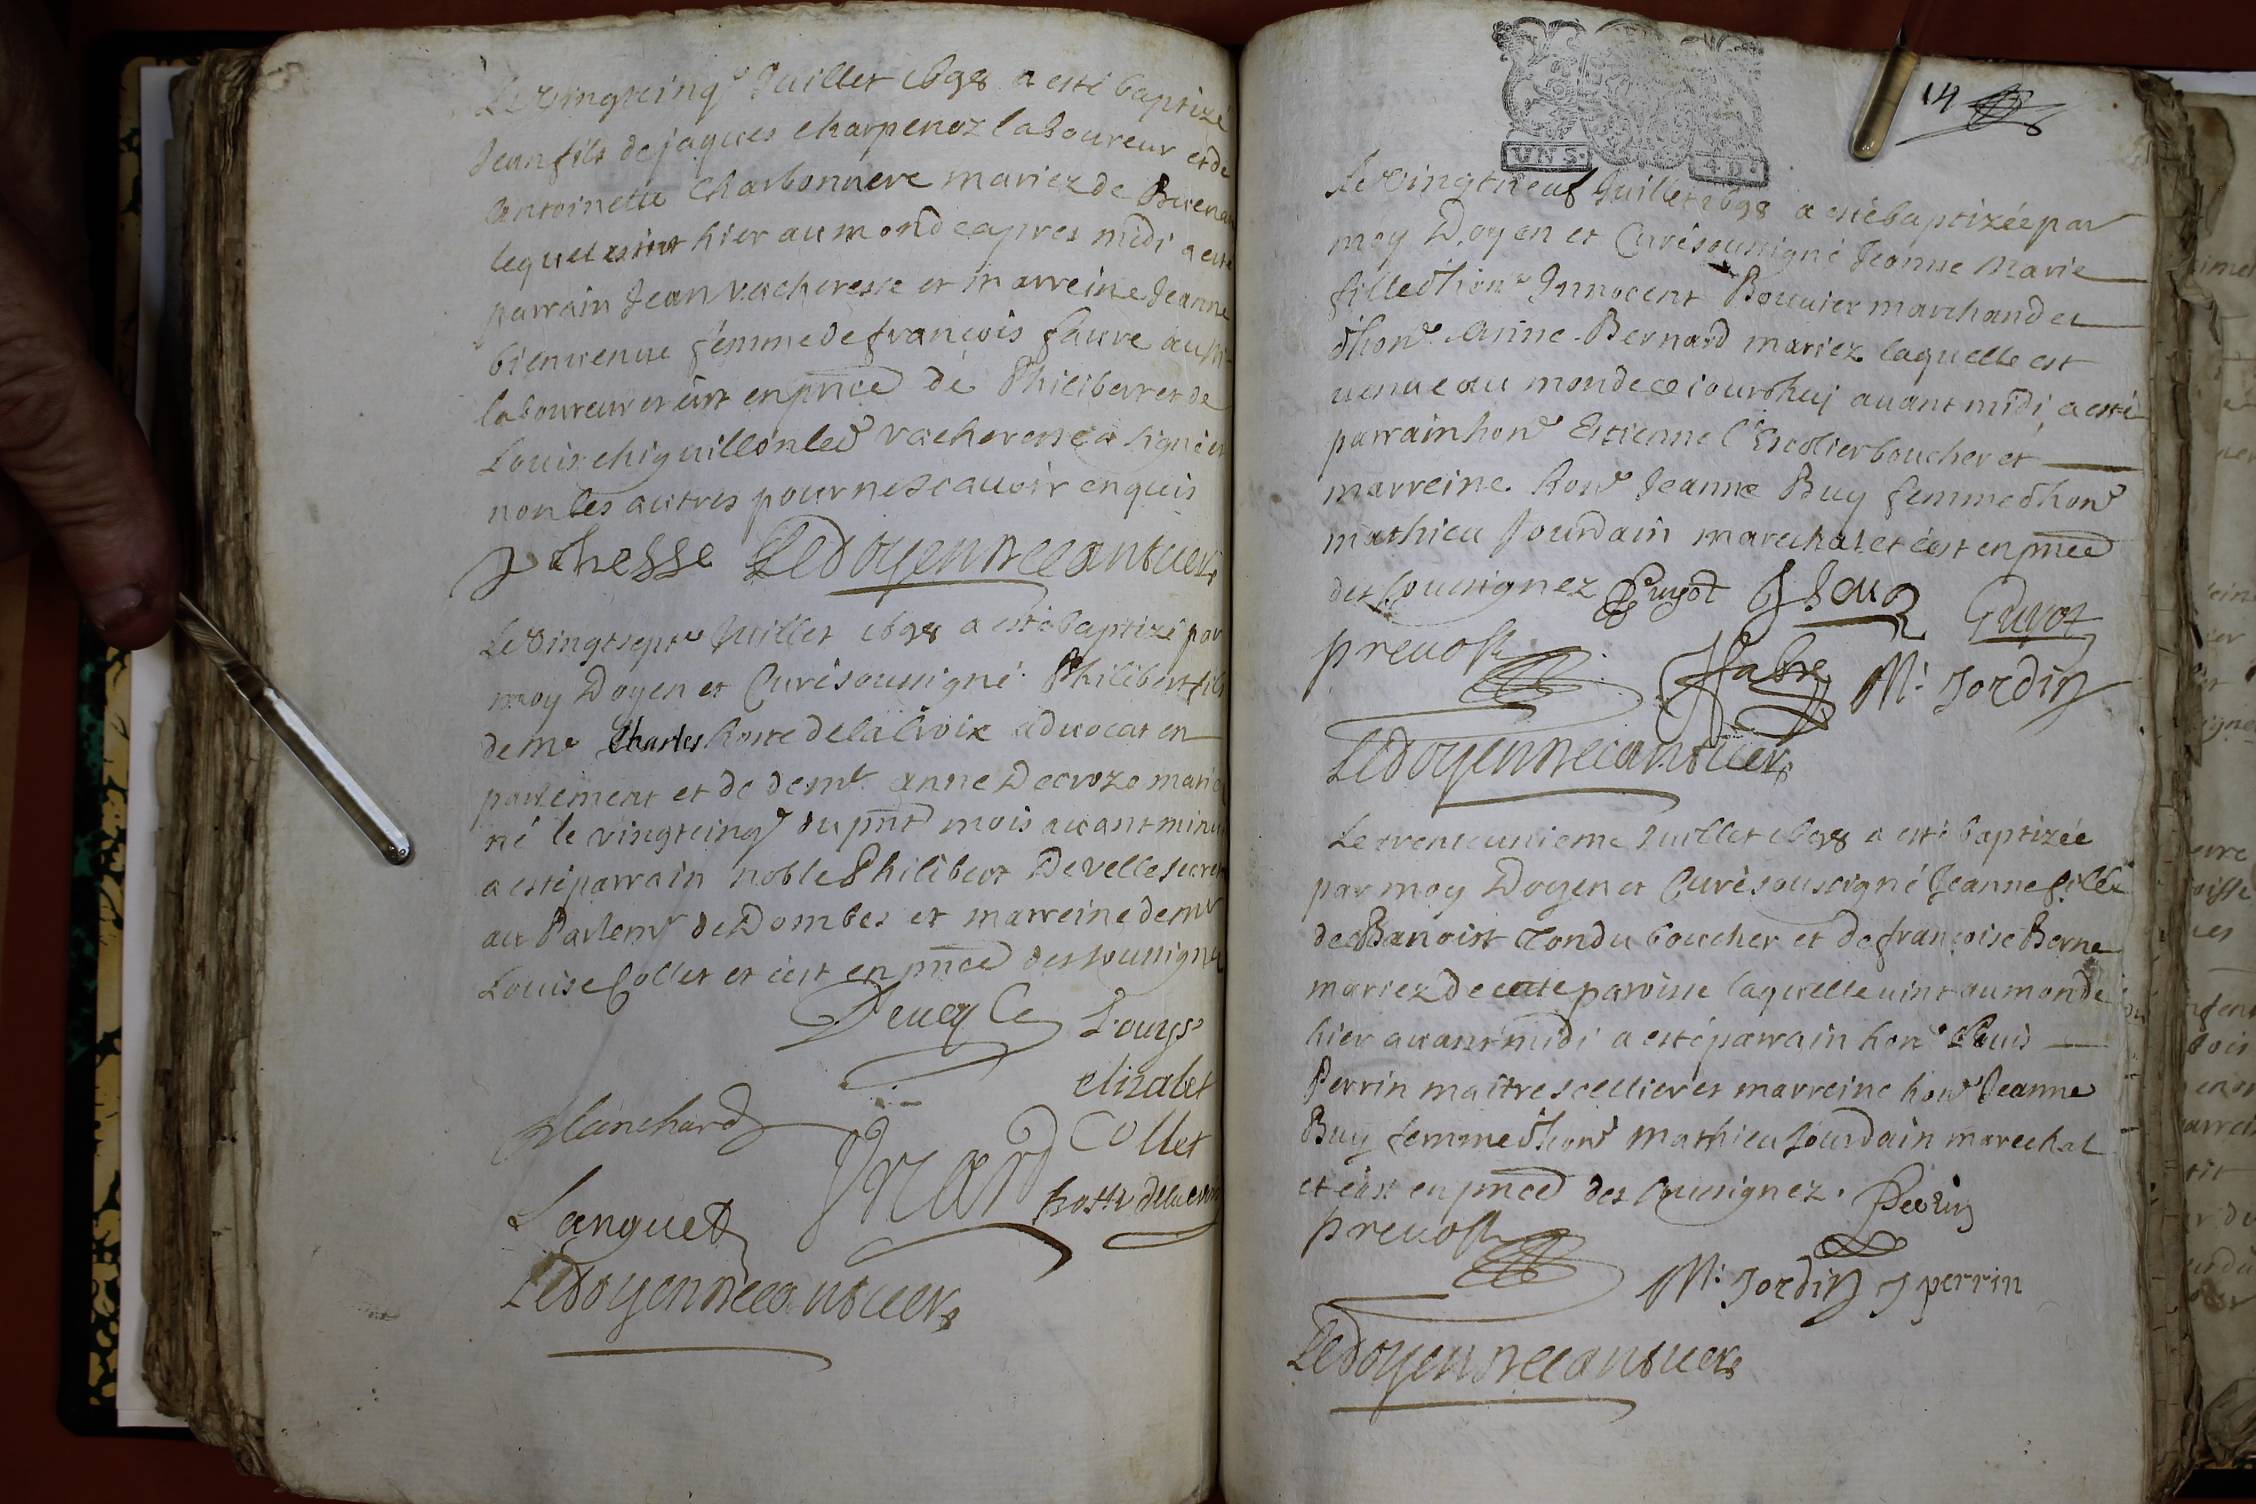 Le vingtcinq.e Juillet 1698 a esté baptizé
Jean fils de jaques charpenoz laboureur et de
antoinette Charbonnere mariez de
lequel vint hier au monde apres midi a esté
parrain Jean vacheresse et marreine Jeanne
bienvenue femme de françois faure aussi
laboureur et c'est en pnce de Philibert et de
Louis chiquillon led vacheresse a signé et
non les autres pour ne scavoir enquis
Le doyen
Le vingtsept.e Juillet 1698 a esté baptizé par
moy Doyen et Curé soussigné Philibert fils
de me Charles hoste de la Croix advocat en
parlement et de dem.lle anne Decroze mariez
né le vingtcinq.e du pnt mois avant minuit
a esté parrain noble Philibert Develle
au Parlem.t de Dombes et marreine dem.lle
Louise Collet et c'est en pnce des soussignez
Louyse
elizabet
Blanchard
Collet
Languet
hoste delacroix
Le doyen
UNS. 4D.
14
Le vingtneuf Juillet 1698 a esté baptizée par
moy Doyen et Curé soussigné Jeanne Marie
fille d'hon.e Innocent Bouvier marchand et
d'hon.e Anne Bernard mariez laquelle est
venue au monde ce jourdhuj avant midi, a esté
parrain hon.e Estienne l'Escolier boucher et
marreine hon.e Jeanne Buy femme d'hon.e
mathieu Jourdain marechal et c'est en pnce
des soussignez Guyot
prevost fabre M. Jordin
Le doyen
Le trenteunieme Juillet 1698 a esté baptizée
par moy Doyen et Curé soussigné Jeanne fille
de Banoist Tondu boucher et de françoise Berne
mariez de cette paroisse laquelle vint au monde
hier avant midi a esté parrain hon.e Louis
Perrin maitre scellier et marreine hon.e Jeanne
Buy femme d'hon.e mathieu Jourdain marechal
et c'est en pnce des soussignez. Perrin
prevost
M. Jordin J perrin
Le doyen